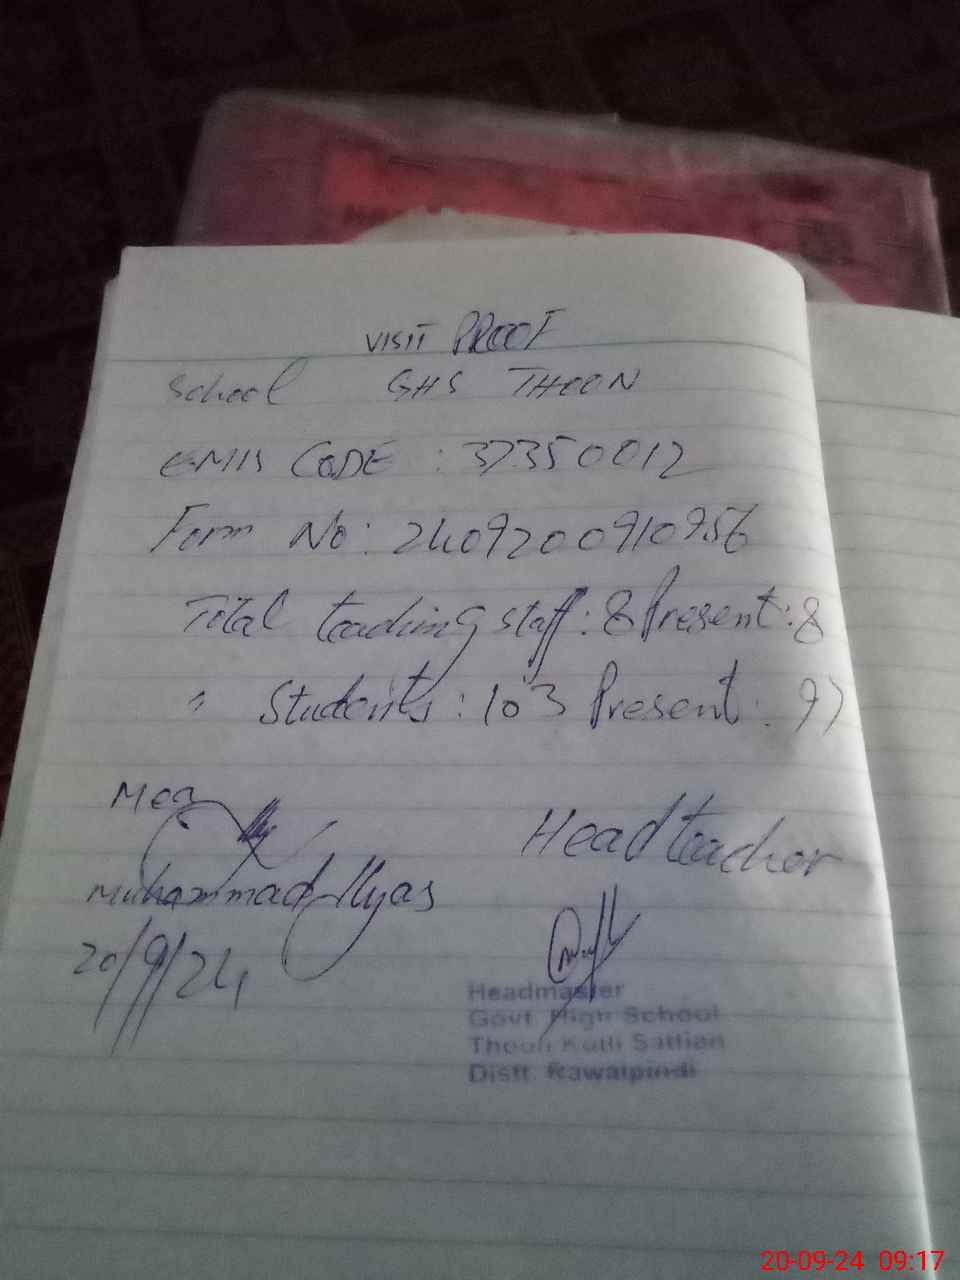 VISIT PROOF
School GHS THOON
EMIS CODE : 37350012
Form No: 2409200910956
Total teaching staff: 8 Present: 8
" Students: 103 Present: 97
MEA
Muhammad Ilyas
20/9/24
Headteacher
Headmaster
Govt. High School
Thoon Kotli Sattian
Distt. Rawalpindi
20-09-24 09:17